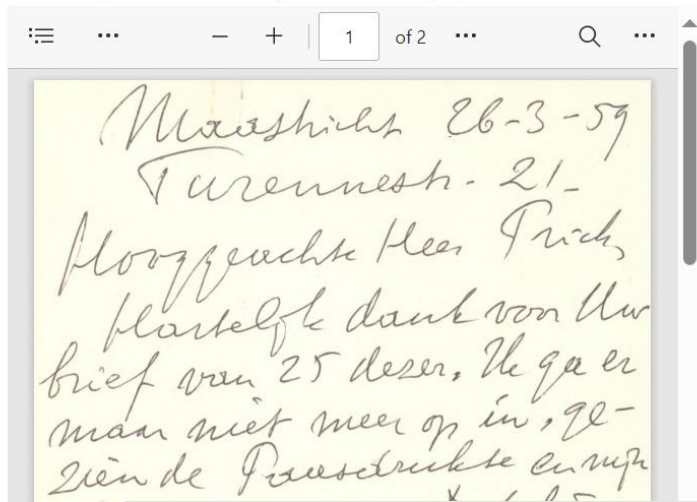 1 of 2
Maastricht 26-3-59
Turennestr. 21-
Hooggeachte Heer Prick,
Hartelijk dank voor Uw
brief van 25 dezer. Ik ga er
maar niet meer op in, ge-
zien de Paasdrukte en mijn